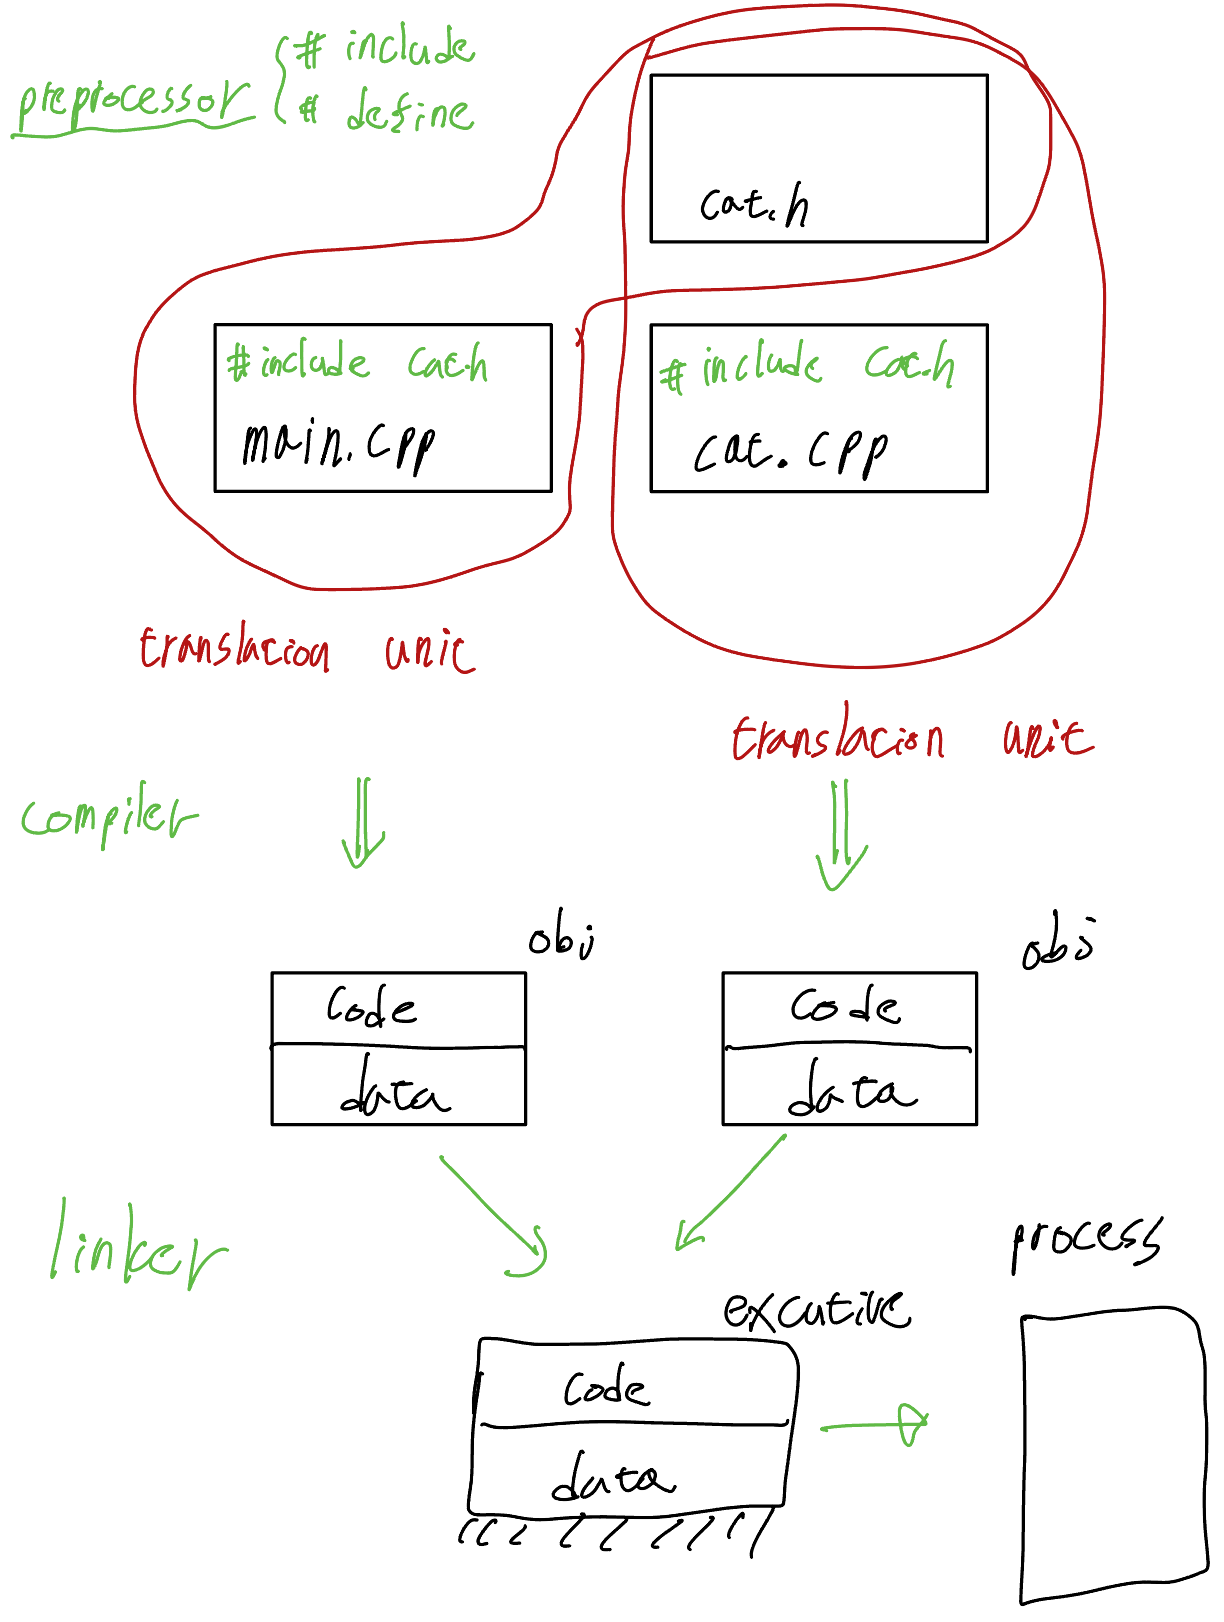 preprocessor
# include
# define
cat.h
#include cat.h
main.cpp
# include cat.h
cat.cpp
translation unit
translation unit
compiler
obj
obj
code
data
code
data
linker
process
excutive
code
data